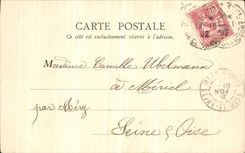 CARTE POSTALE
Ce côté est exclusivement réservé à l'adresse.
Madame Camille Ubelmann
à Mériel
par Méry
Seine & Oise